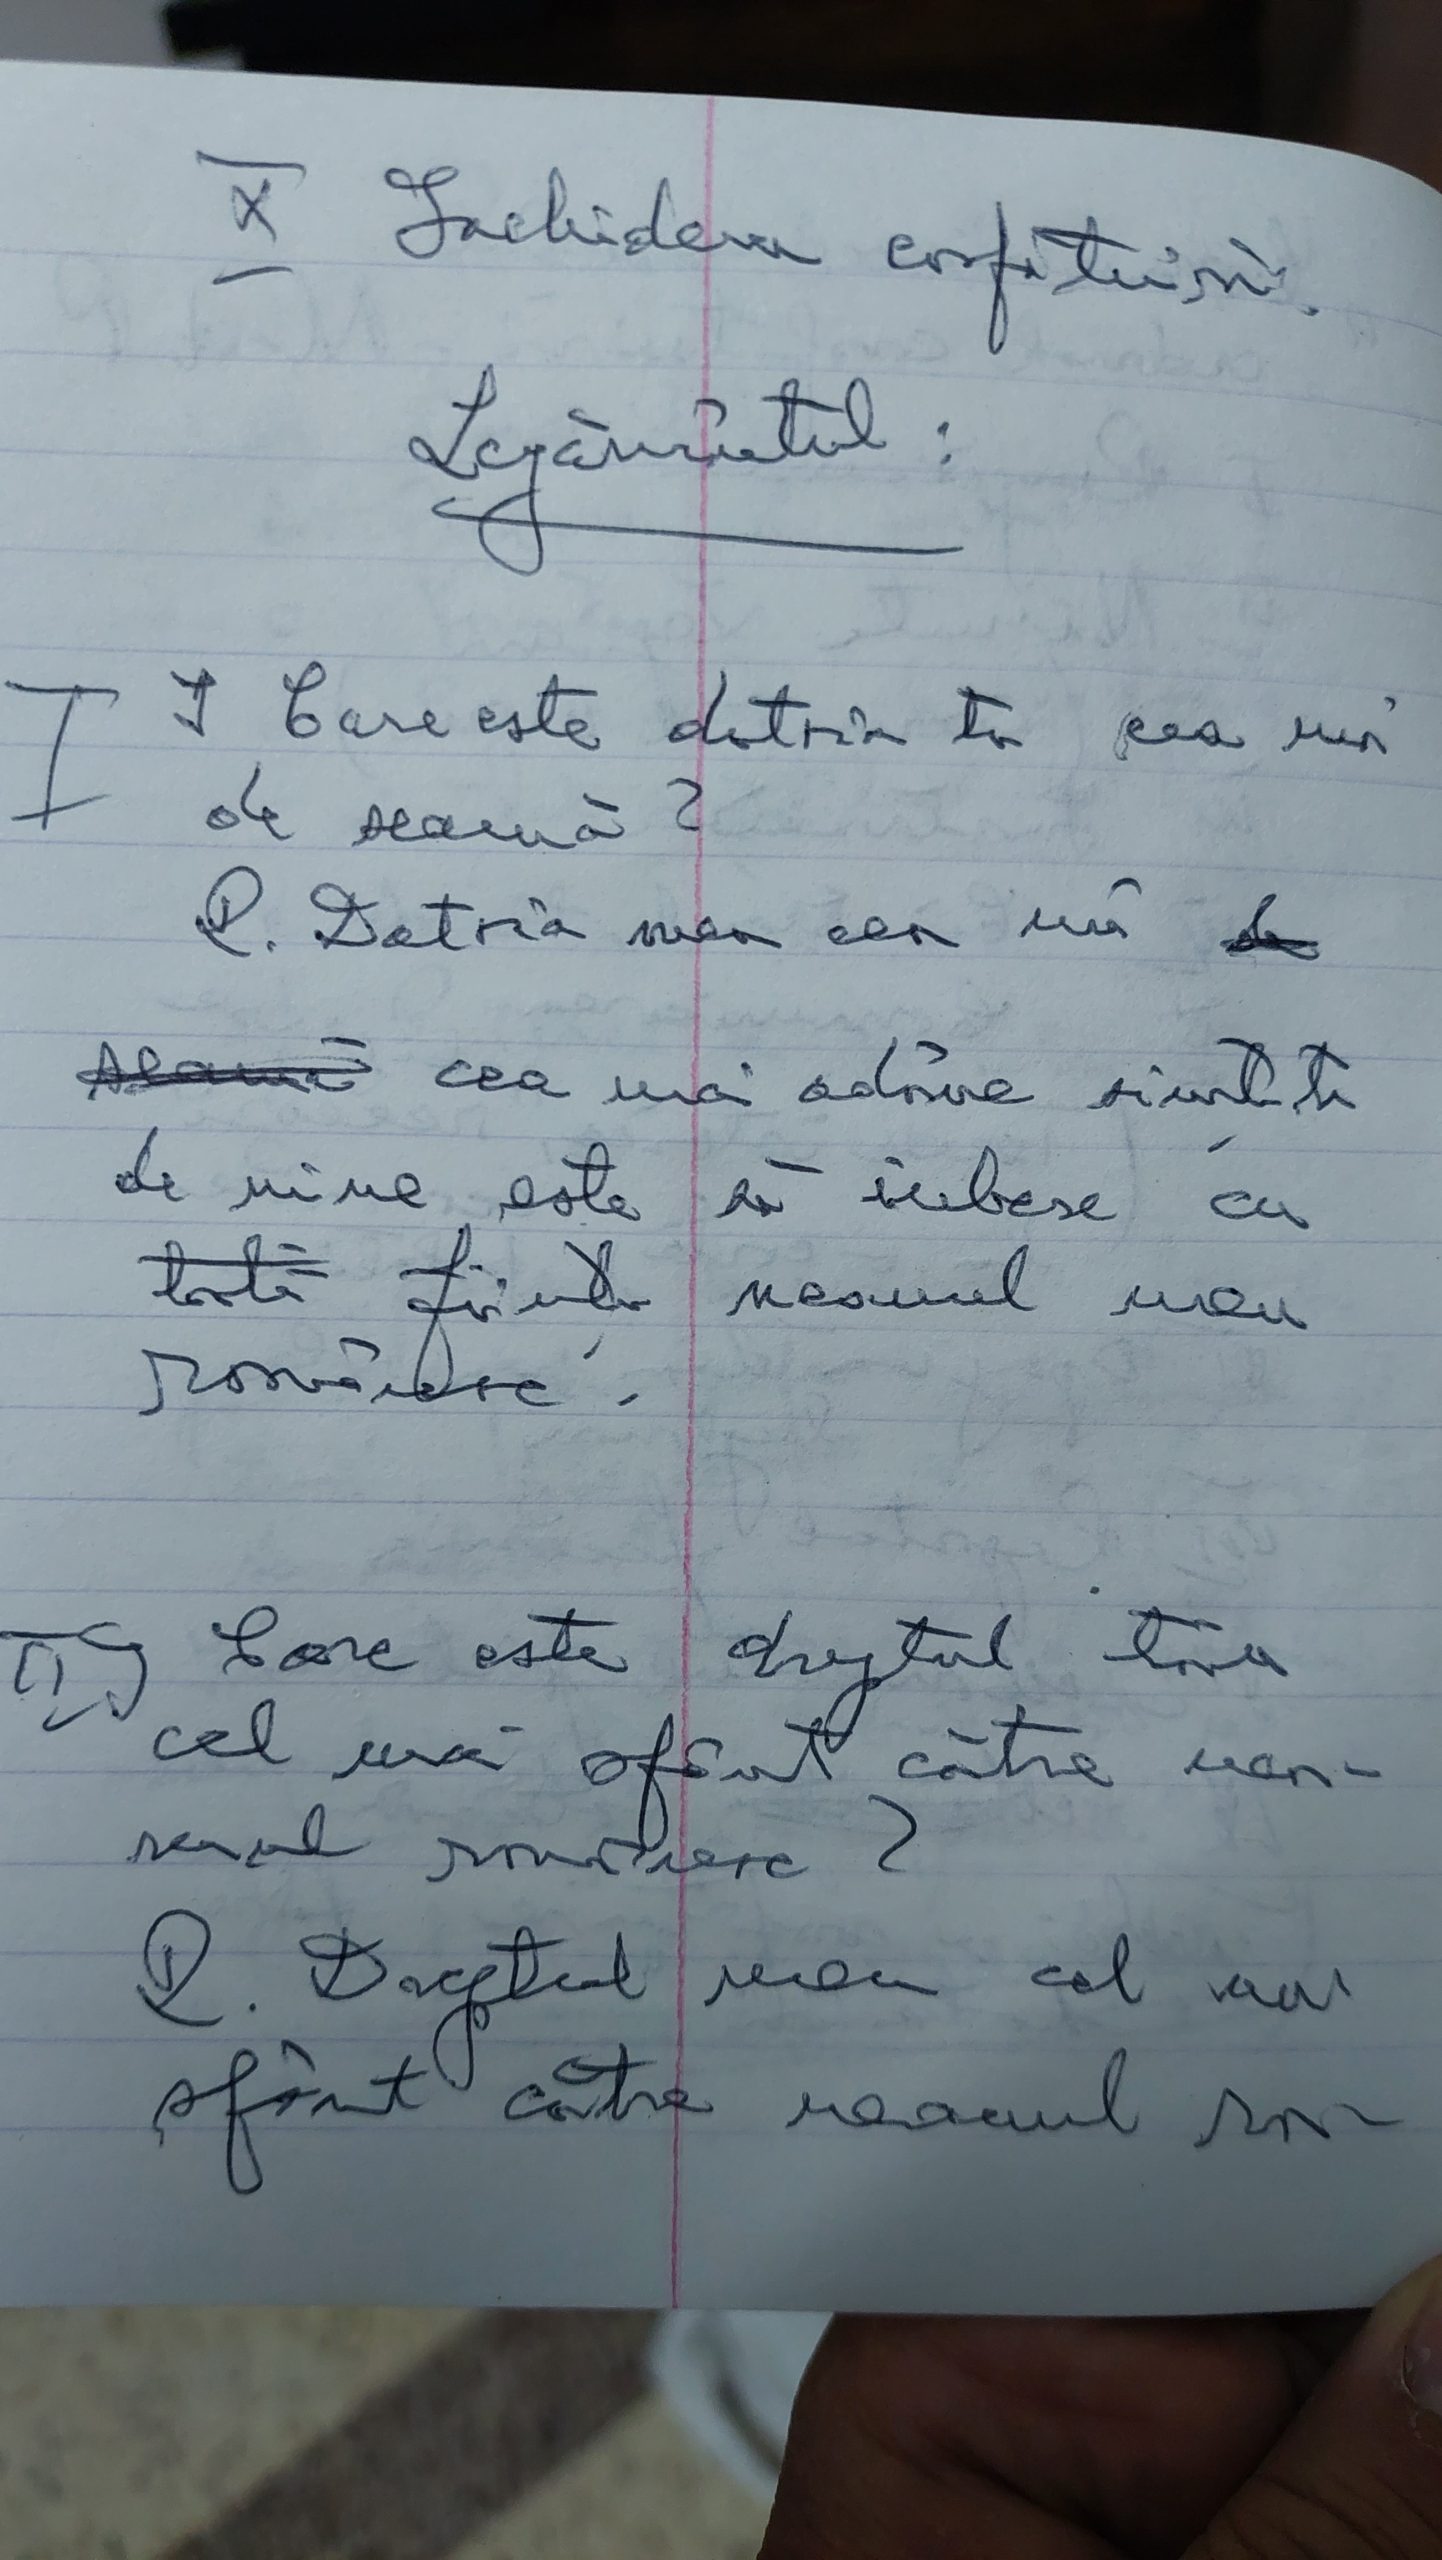 X Închiderea consfătuirii.
Legământul:
I Î Care este datoria ta cea mai
de seamă?
R. Datoria mea cea mai de
seamă cea mai adânc simțită
de mine este să iubesc cu
toată ființa neamul meu
românesc.
II) Care este dreptul tău
cel mai sfânt către nea-
mul românesc?
R. Dreptul meu cel mai
sfânt către neamul ro-